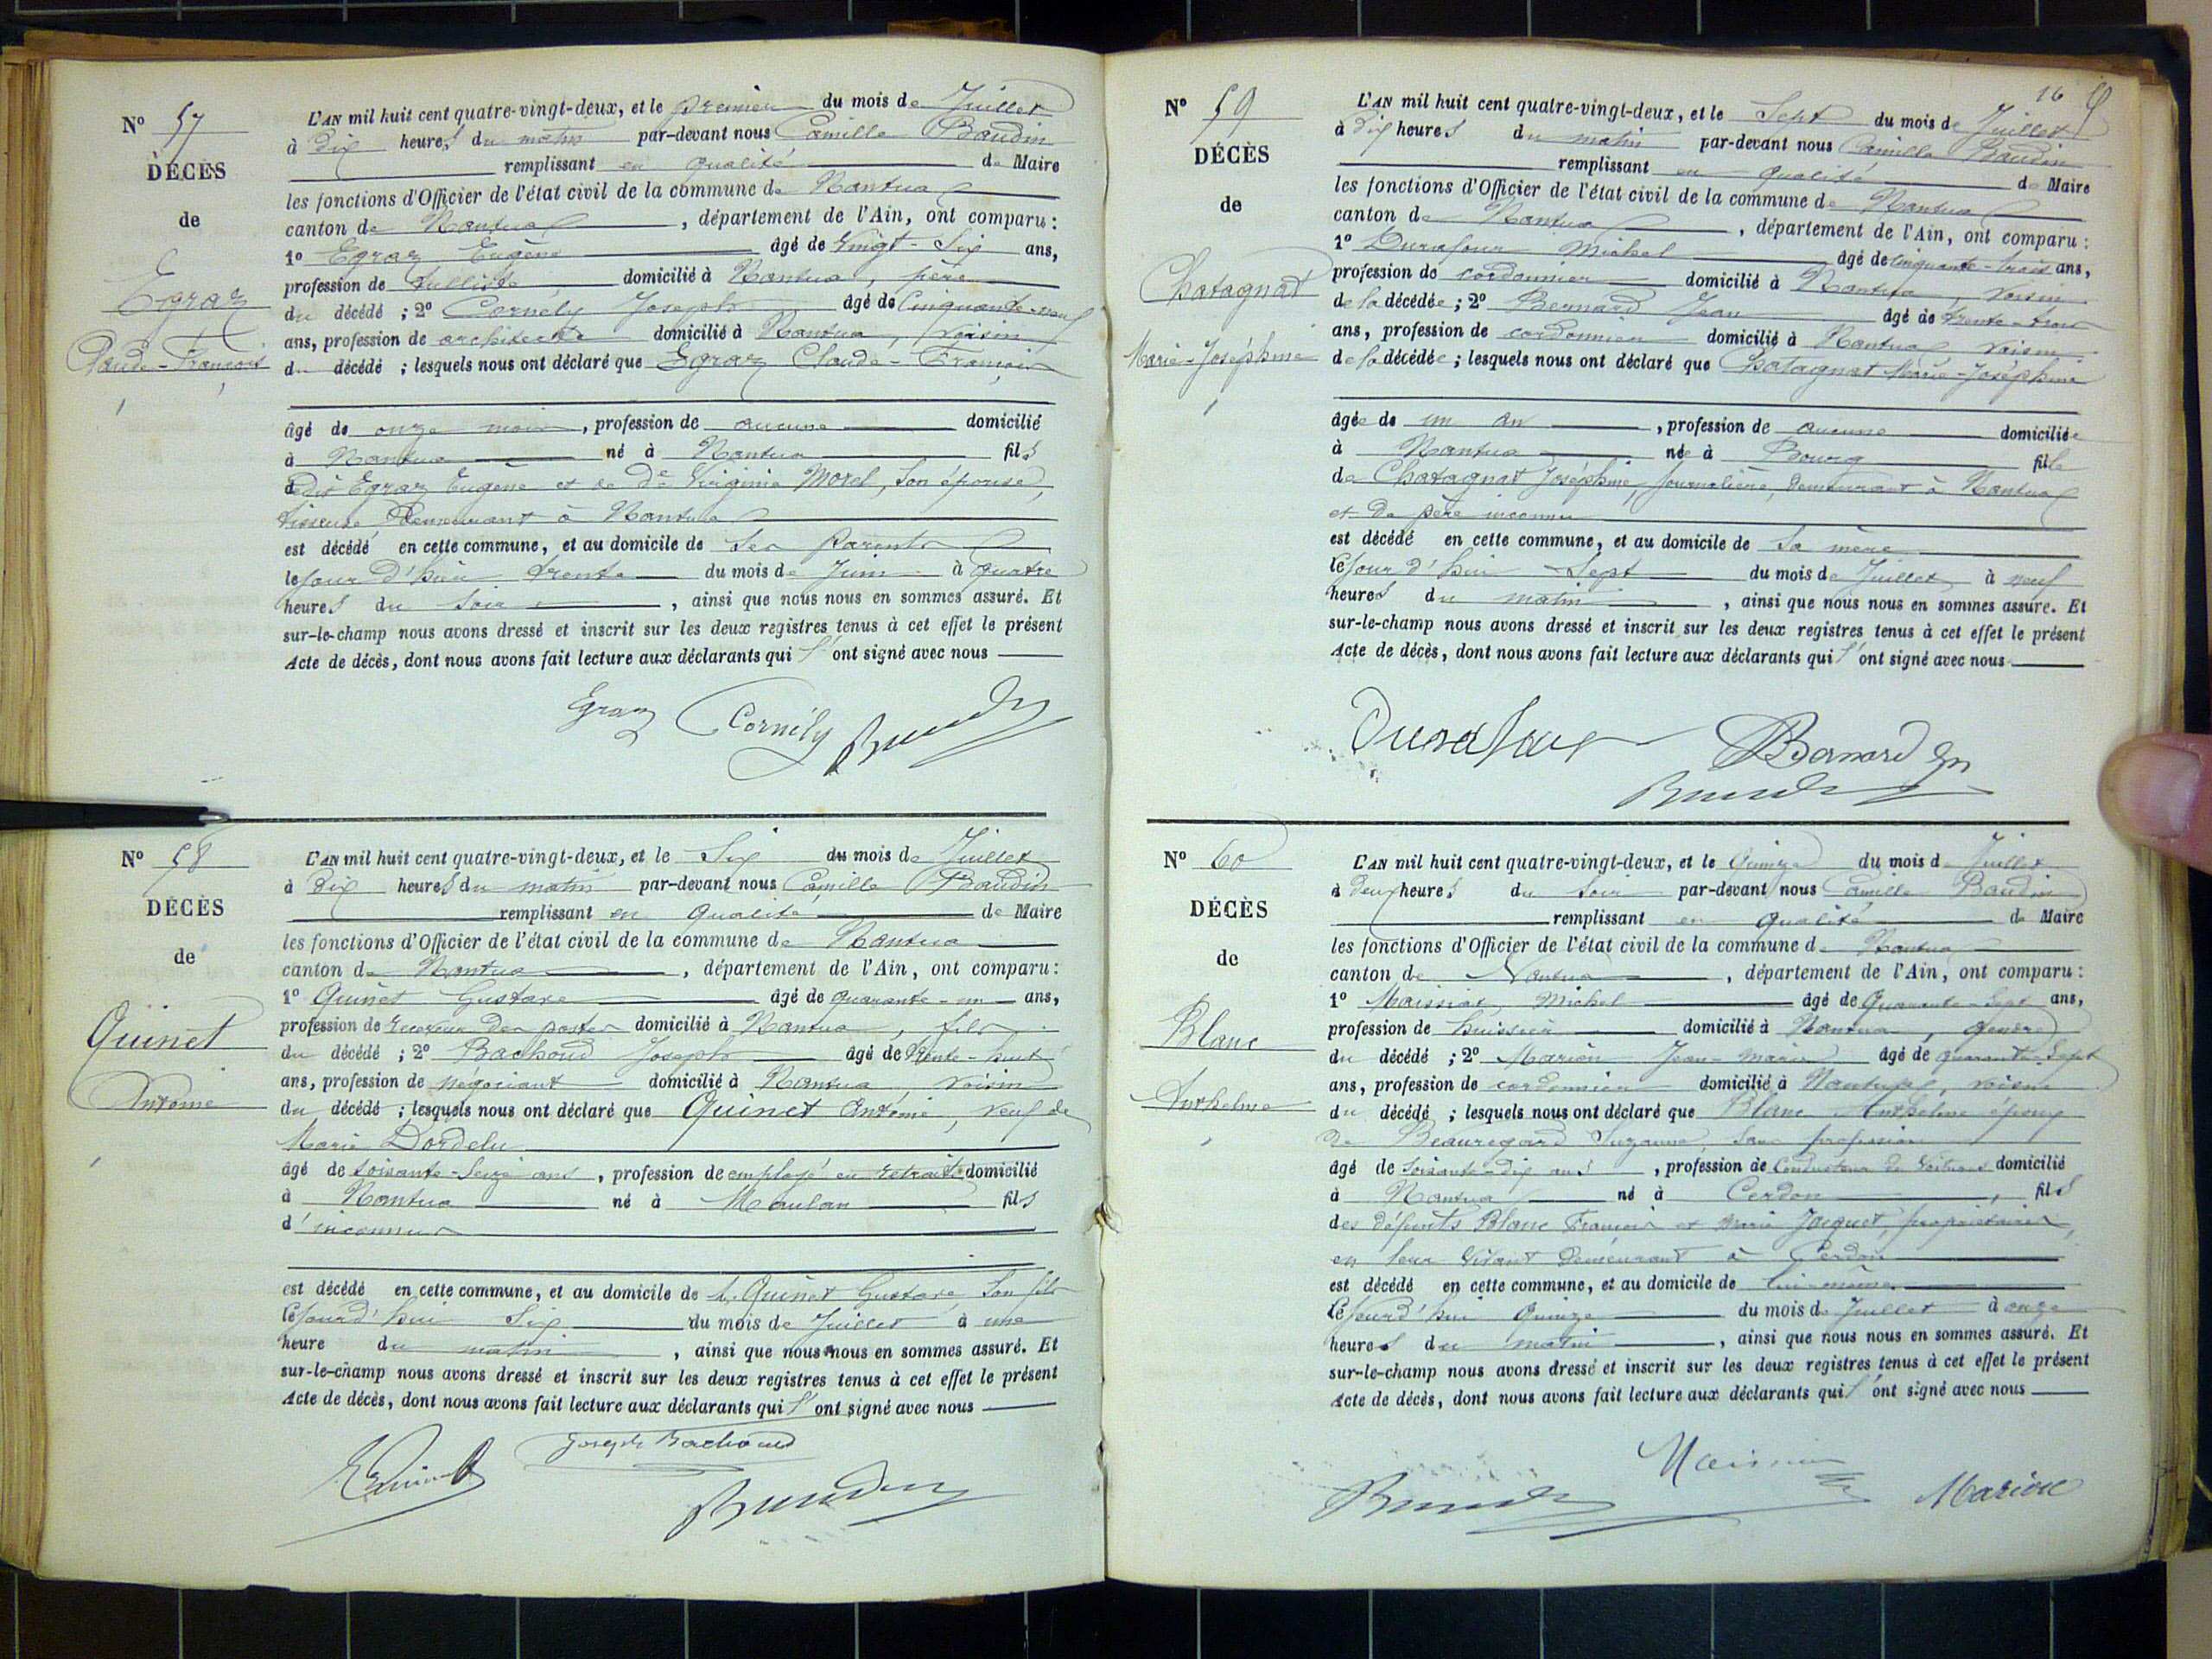 N° 57
DÉCÈS
de
Egraz
Claude-François
L'AN mil huit cent quatre-vingt-deux, et le premier du mois de Juillet
à Dix heures du matin par-devant nous Camille Baudin
remplissant en qualité de Maire
les fonctions d'Officier de l'état civil de la commune de Nantua
canton de Nantua, département de l'Ain, ont comparu :
1° Egraz Eugène âgé de Vingt-Six ans,
profession de tulliste domicilié à Nantua, père
du décédé ; 2° Cornély Joseph âgé de Cinquante-neuf
ans, profession de architecte domicilié à Nantua, Voisin
du décédé ; lesquels nous ont déclaré que Egraz Claude-François
âgé de onze mois, profession de aucune domicilié
à Nantua né à Nantua fils
dudit Egraz Eugène et de De Virginie Morel, Son épouse,
tisseuse Demeurant à Nantua
est décédé en cette commune, et au domicile de Ses Parents
le jour d'hier trente du mois de Juin à quatre
heures du Soir, ainsi que nous nous en sommes assuré. Et
sur-le-champ nous avons dressé et inscrit sur les deux registres tenus à cet effet le présent
Acte de décès, dont nous avons fait lecture aux déclarants qui l'ont signé avec nous
Egraz Cornély Baudin
N° 58
DÉCÈS
de
Quinet
Antoine
L'AN mil huit cent quatre-vingt-deux, et le Six du mois de Juillet
à Dix heures du matin par-devant nous Camille Baudin
remplissant en qualité de Maire
les fonctions d'Officier de l'état civil de la commune de Nantua
canton de Nantua, département de l'Ain, ont comparu :
1° Quinet Gustave âgé de quarante-un ans,
profession de receveur des postes domicilié à Nantua, fils
du décédé ; 2° Bachoud Joseph âgé de trente-huit
ans, profession de négociant domicilié à Nantua, Voisin
du décédé ; lesquels nous ont déclaré que Quinet Antoine, Veuf de
Marie Dordelu
âgé de Soixante-Seize ans, profession de employé en retraite domicilié
à Nantua né à Maulan fils
d'inconnus
est décédé en cette commune, et au domicile de M. Quinet Gustave, Son fils
Cejourd'hui Six du mois de Juillet à une
heure du matin, ainsi que nous nous en sommes assuré. Et
sur-le-champ nous avons dressé et inscrit sur les deux registres tenus à cet effet le présent
Acte de décès, dont nous avons fait lecture aux déclarants qui l'ont signé avec nous
Quinet Joseph Bachoud
Baudin
16
N° 59
DÉCÈS
de
Chatagnat
Marie-Joséphine
L'AN mil huit cent quatre-vingt-deux, et le Sept du mois de Juillet
à Dix heures du matin par-devant nous Camille Baudin
remplissant en qualité de Maire
les fonctions d'Officier de l'état civil de la commune de Nantua
canton de Nantua, département de l'Ain, ont comparu :
1° Durafour Michel âgé de cinquante-trois ans,
profession de cordonnier domicilié à Nantua, Voisin
de la décédée ; 2° Bernard Jean âgé de trente-trois
ans, profession de cordonnier domicilié à Nantua voisin
de la décédée ; lesquels nous ont déclaré que Chatagnat Marie-Joséphine
âgée de un an, profession de aucune domiciliée
à Nantua née à Bourg fille
de Chatagnat Joséphine, Journalière, Demeurant à Nantua
et De père inconnu
est décédé en cette commune, et au domicile de Sa mère
Cejour d'hui Sept du mois de Juillet à neuf
heures du matin, ainsi que nous nous en sommes assuré. Et
sur-le-champ nous avons dressé et inscrit sur les deux registres tenus à cet effet le présent
Acte de décès, dont nous avons fait lecture aux déclarants qui l'ont signé avec nous
Durafour Bernard Jn
Baudin
N° 60
DÉCÈS
de
Blanc
Anthelme
L'AN mil huit cent quatre-vingt-deux, et le Quinze du mois de Juillet
à Deux heures du Soir par-devant nous Camille Baudin
remplissant en qualité de Maire
les fonctions d'Officier de l'état civil de la commune de Nantua
canton de Nantua, département de l'Ain, ont comparu :
1° Maissiat, Michel âgé de Quarante-Sept ans,
profession de huissier domicilié à Nantua, gendre
du décédé ; 2° Marion Jean-Marie âgé de quarante-Sept
ans, profession de cordonnier domicilié à Nantua, voisin
du décédé ; lesquels nous ont déclaré que Blanc Anthelme époux
de Beauregard Suzanne, Sans profession
âgé de Soixante-dix ans, profession de Conducteur de Voitures domicilié
à Nantua né à Cerdon, fils
des défunts Blanc François et Marie Jacquet, propriétaires,
en leur Vivant Demeurant à Cerdon
est décédé en cette commune, et au domicile de lui-même
Cejourd'hui Quinze du mois de Juillet à onze
heures du matin, ainsi que nous nous en sommes assuré. Et
sur-le-champ nous avons dressé et inscrit sur les deux registres tenus à cet effet le présent
Acte de décès, dont nous avons fait lecture aux déclarants qui l'ont signé avec nous
Maissiat
Baudin Marion